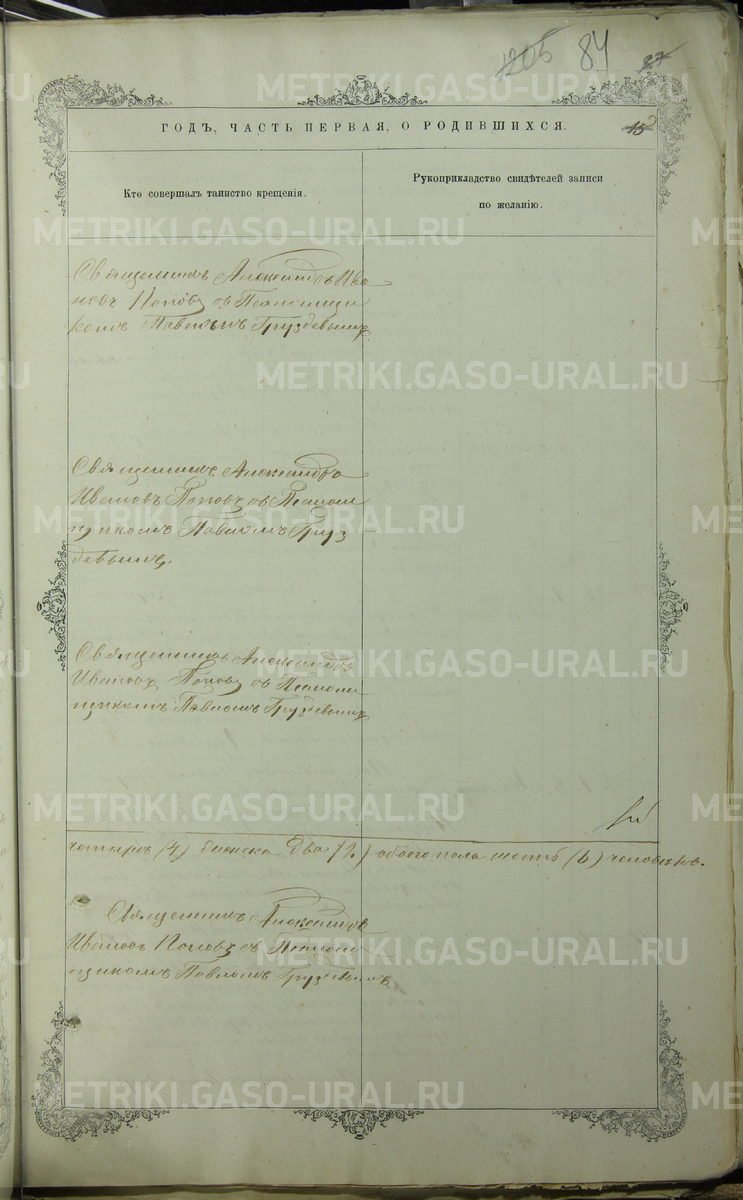 1205 84 87
ГОДЪ, ЧАСТЬ ПЕРВАЯ, О РОДИВШИХСЯ.
45
Кто совершалъ таинство крещенія.
Рукоприкладство свидѣтелей записи
по желанію.
Священникъ Александръ Ива
новъ Поповъ съ Псаломщи
комъ Павломъ Груздевымъ
Священникъ Александръ
Ивановъ Поповъ съ Псалом
щикомъ Павломъ Груз
девымъ.
Священникъ Александръ
Ивановъ Поповъ съ Псалом
щикомъ Павломъ Груздевымъ
четыре (4) женска два (2) обоего пола шесть (6) человѣковъ.
Священникъ Александръ
Ивановъ Поповъ съ Псалом
щикомъ Павломъ Груздевымъ
METRIKI.GASO-URAL.RU